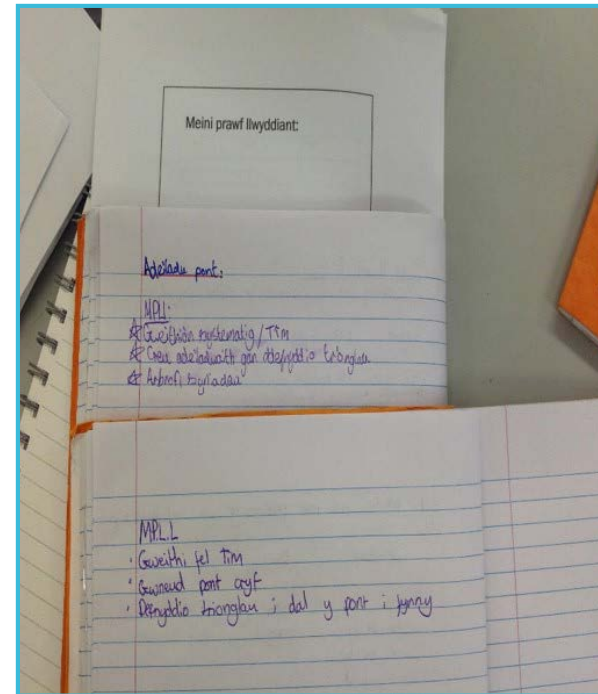 Meini prawf llwyddiant:
Adeiladu pont:
MPLl:
Gweithio'n systematig / Tîm
Creu adeiladwaith gan ddefnyddio trionglau
Arbrofi
MPLL
· Gweithi fel Tîm
· Gwneud pont cryf
· Defnyddio trionglau i dal y pont i fynny